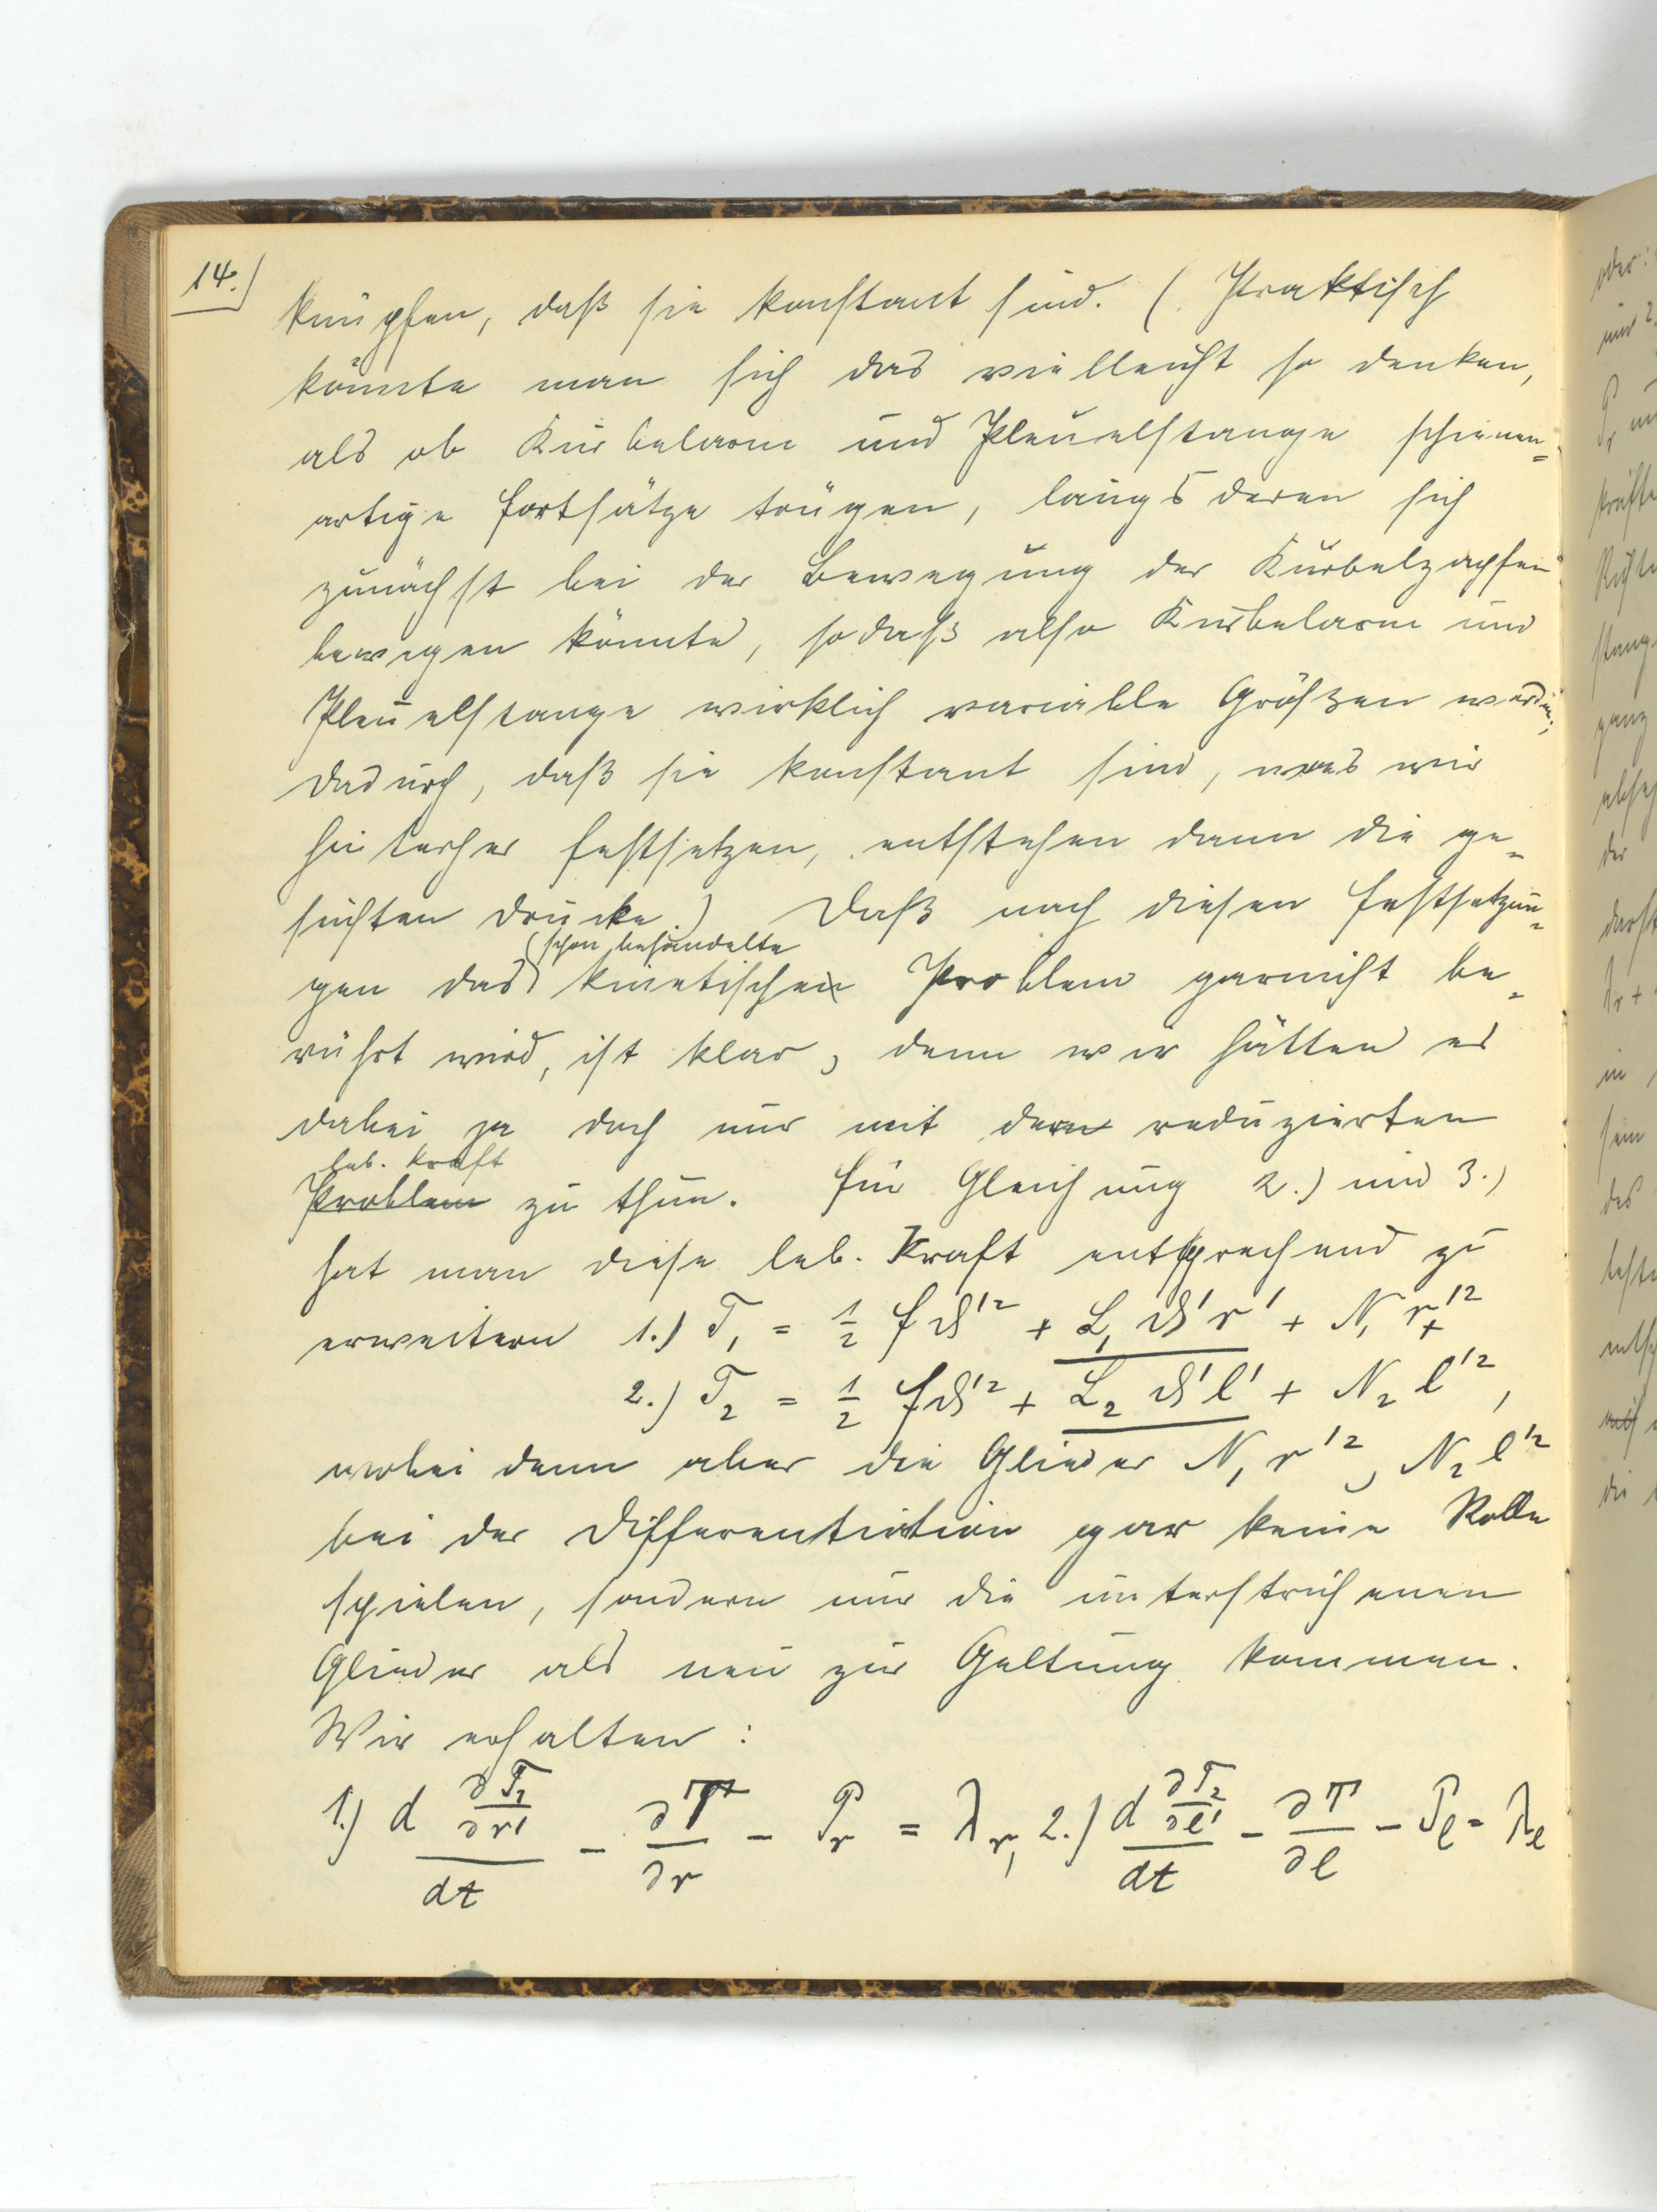 14.)
knüpfen, daß sie konstant sind. (Praktisch
könnte man sich das vielleicht so denken,
als ob Kurbelarm und Pleuelstange schienen=
artige Fortsätze trügen, längs deren sich
zunächst bei der Bewegung der Kurbelzapfen
bewegen könnte, sodaß also Kurbelarm und
Pleuelstange wirklich variable Größen werden;
dadurch, daß sie konstant sind, was wir
hinterher festsetzen, entstehen dann die ge=
suchten Drucke.) Daß nach diesen Festsetzun=
schon behandelte
gen das kinetische Problem garnicht be=
rührt wird, ist klar, denn wir hätten es
dabei ja doch nur mit der reduzierten
leb. Kraft
Problem zu thun. Für Gleichung 2.) und 3.)
hat man diese leb. Kraft entsprechend zu
erweitern 1.) T₁ = 1/2 f ϑ'² + L₁ ϑ' r' + N₁ r'²
2.) T₂ = 1/2 f ϑ'² + L₂ ϑ' l' + N₂ l'²,
wobei denn aber die Glieder N₁ r'², N₂ l'²
bei der Differentiation gar keine Rolle
spielen, sondern nur die unterstrichenen
Glieder als neu zur Geltung kommen.
Wir erhalten:
1.) d ∂T₁/∂r' / dt - ∂T/∂r - P_r = λ_r, 2.) d ∂T₂/∂l' / dt - ∂T/∂l - P_l = λ_l